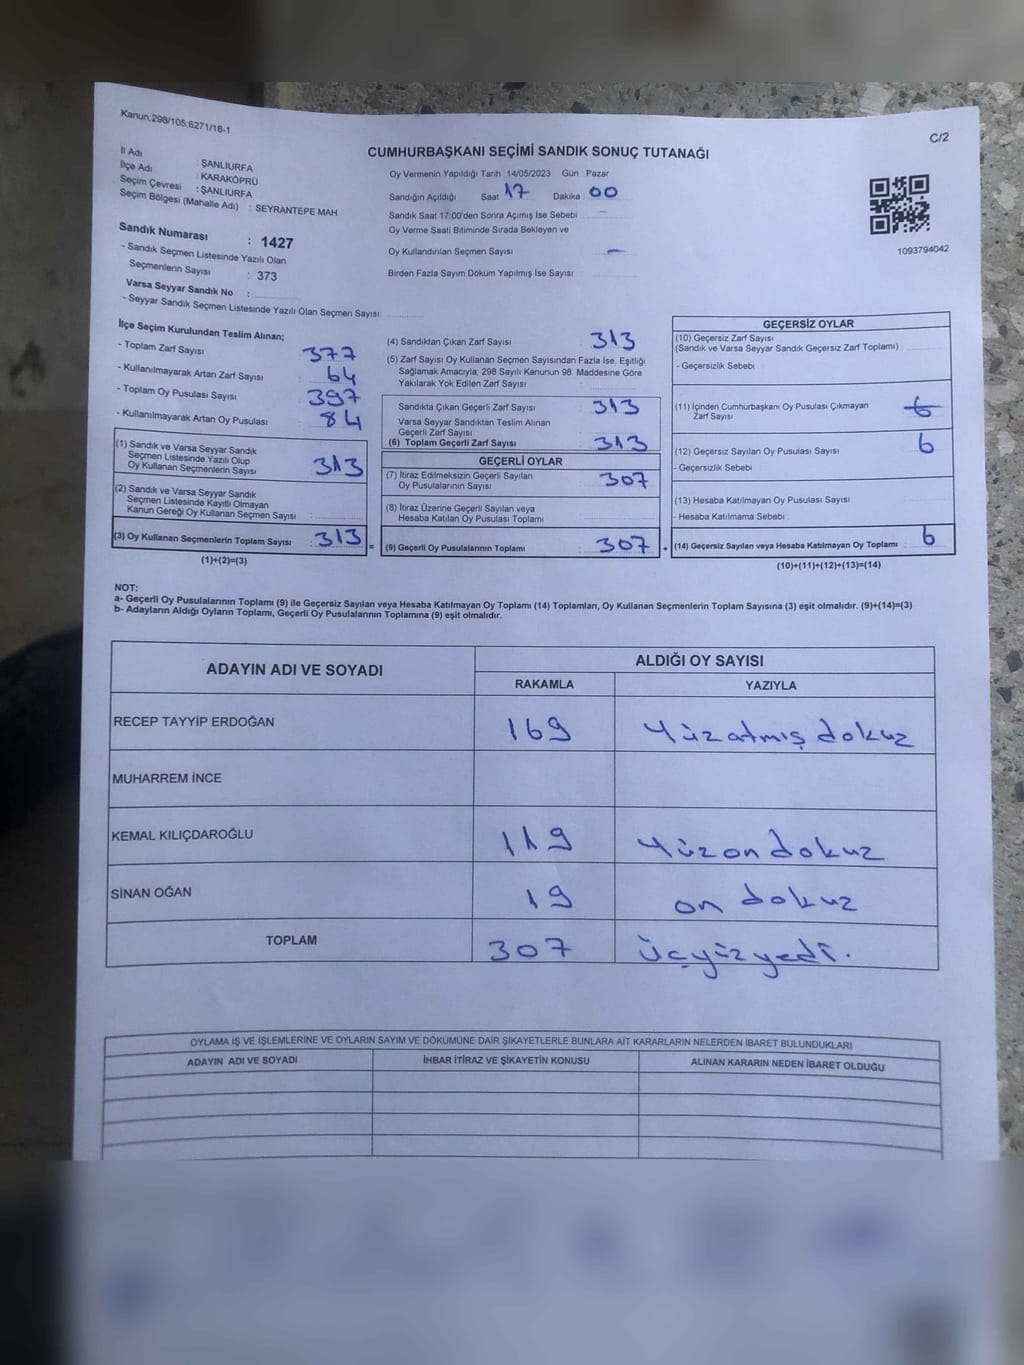 Kanun;298/105;6271/18-1
C/2
CUMHURBAŞKANI SEÇİMİ SANDIK SONUÇ TUTANAĞI
İl Adı : ŞANLIURFA
İlçe Adı : KARAKÖPRÜ
Seçim Çevresi : ŞANLIURFA
Seçim Bölgesi (Mahalle Adı) : SEYRANTEPE MAH
Sandık Numarası : 1427
- Sandık Seçmen Listesinde Yazılı Olan
Seçmenlerin Sayısı : 373
Varsa Seyyar Sandık No :
- Seyyar Sandık Seçmen Listesinde Yazılı Olan Seçmen Sayısı
Oy Vermenin Yapıldığı Tarih 14/05/2023 Gün : Pazar
Sandığın Açıldığı Saat 17 Dakika 00
Sandık Saat 17:00'den Sonra Açımış İse Sebebi
Oy Verme Saati Bitiminde Sırada Bekleyen ve
Oy Kullandırılan Seçmen Sayısı –
Birden Fazla Sayım Döküm Yapılmış İse Sayısı
1093794042
İlçe Seçim Kurulundan Teslim Alınan;
- Toplam Zarf Sayısı 377
- Kullanılmayarak Artan Zarf Sayısı : 64
- Toplam Oy Pusulası Sayısı 397
- Kullanılmayarak Artan Oy Pusulası : 84
(1) Sandık ve Varsa Seyyar Sandık
Seçmen Listesinde Yazılı Olup
Oy Kullanan Seçmenlerin Sayısı 313
(2) Sandık ve Varsa Seyyar Sandık
Seçmen Listesinde Kayıtlı Olmayan
Kanun Gereği Oy Kullanan Seçmen Sayısı :
(3) Oy Kullanan Seçmenlerin Toplam Sayısı : 313 =
(1)+(2)=(3)
(4) Sandıktan Çıkan Zarf Sayısı 313
(5) Zarf Sayısı Oy Kullanan Seçmen Sayısından Fazla İse, Eşitliği
Sağlamak Amacıyla; 298 Sayılı Kanunun 98. Maddesine Göre
Yakılarak Yok Edilen Zarf Sayısı :
Sandıkta Çıkan Geçerli Zarf Sayısı 313
Varsa Seyyar Sandıktan Teslim Alınan
Geçerli Zarf Sayısı
(6) Toplam Geçerli Zarf Sayısı 313
GEÇERLİ OYLAR
(7) İtiraz Edilmeksizin Geçerli Sayılan
Oy Pusulalarının Sayısı 307
(8) İtiraz Üzerine Geçerli Sayılan veya
Hesaba Katılan Oy Pusulası Toplamı
(9) Geçerli Oy Pusulalarının Toplamı : 307 +
GEÇERSİZ OYLAR
(10) Geçersiz Zarf Sayısı
(Sandık ve Varsa Seyyar Sandık Geçersiz Zarf Toplamı)
- Geçersizlik Sebebi :
(11) İçinden Cumhurbaşkanı Oy Pusulası Çıkmayan
Zarf Sayısı
(12) Geçersiz Sayılan Oy Pusulası Sayısı : 6
- Geçersizlik Sebebi :
(13) Hesaba Katılmayan Oy Pusulası Sayısı :
- Hesaba Katılmama Sebebi :
(14) Geçersiz Sayılan veya Hesaba Katılmayan Oy Toplamı : 6
(10)+(11)+(12)+(13)=(14)
NOT:
a- Geçerli Oy Pusulalarının Toplamı (9) ile Geçersiz Sayılan veya Hesaba Katılmayan Oy Toplamı (14) Toplamları, Oy Kullanan Seçmenlerin Toplam Sayısına (3) eşit olmalıdır. (9)+(14)=(3)
b- Adayların Aldığı Oyların Toplamı, Geçerli Oy Pusulalarının Toplamına (9) eşit olmalıdır.
ADAYIN ADI VE SOYADI ALDIĞI OY SAYISI
RAKAMLA YAZIYLA
RECEP TAYYİP ERDOĞAN 169 Yüzatmış dokuz
MUHARREM İNCE
KEMAL KILIÇDAROĞLU 119 Yüzon dokuz
SİNAN OĞAN 19 on dokuz
TOPLAM 307 üçyüz yedi.
OYLAMA İŞ VE İŞLEMLERİNE VE OYLARIN SAYIM VE DÖKÜMÜNE DAİR ŞİKAYETLERLE BUNLARA AİT KARARLARIN NELERDEN İBARET BULUNDUKLARI
ADAYIN ADI VE SOYADI İHBAR İTİRAZ VE ŞİKAYETİN KONUSU ALINAN KARARIN NEDEN İBARET OLDUĞU